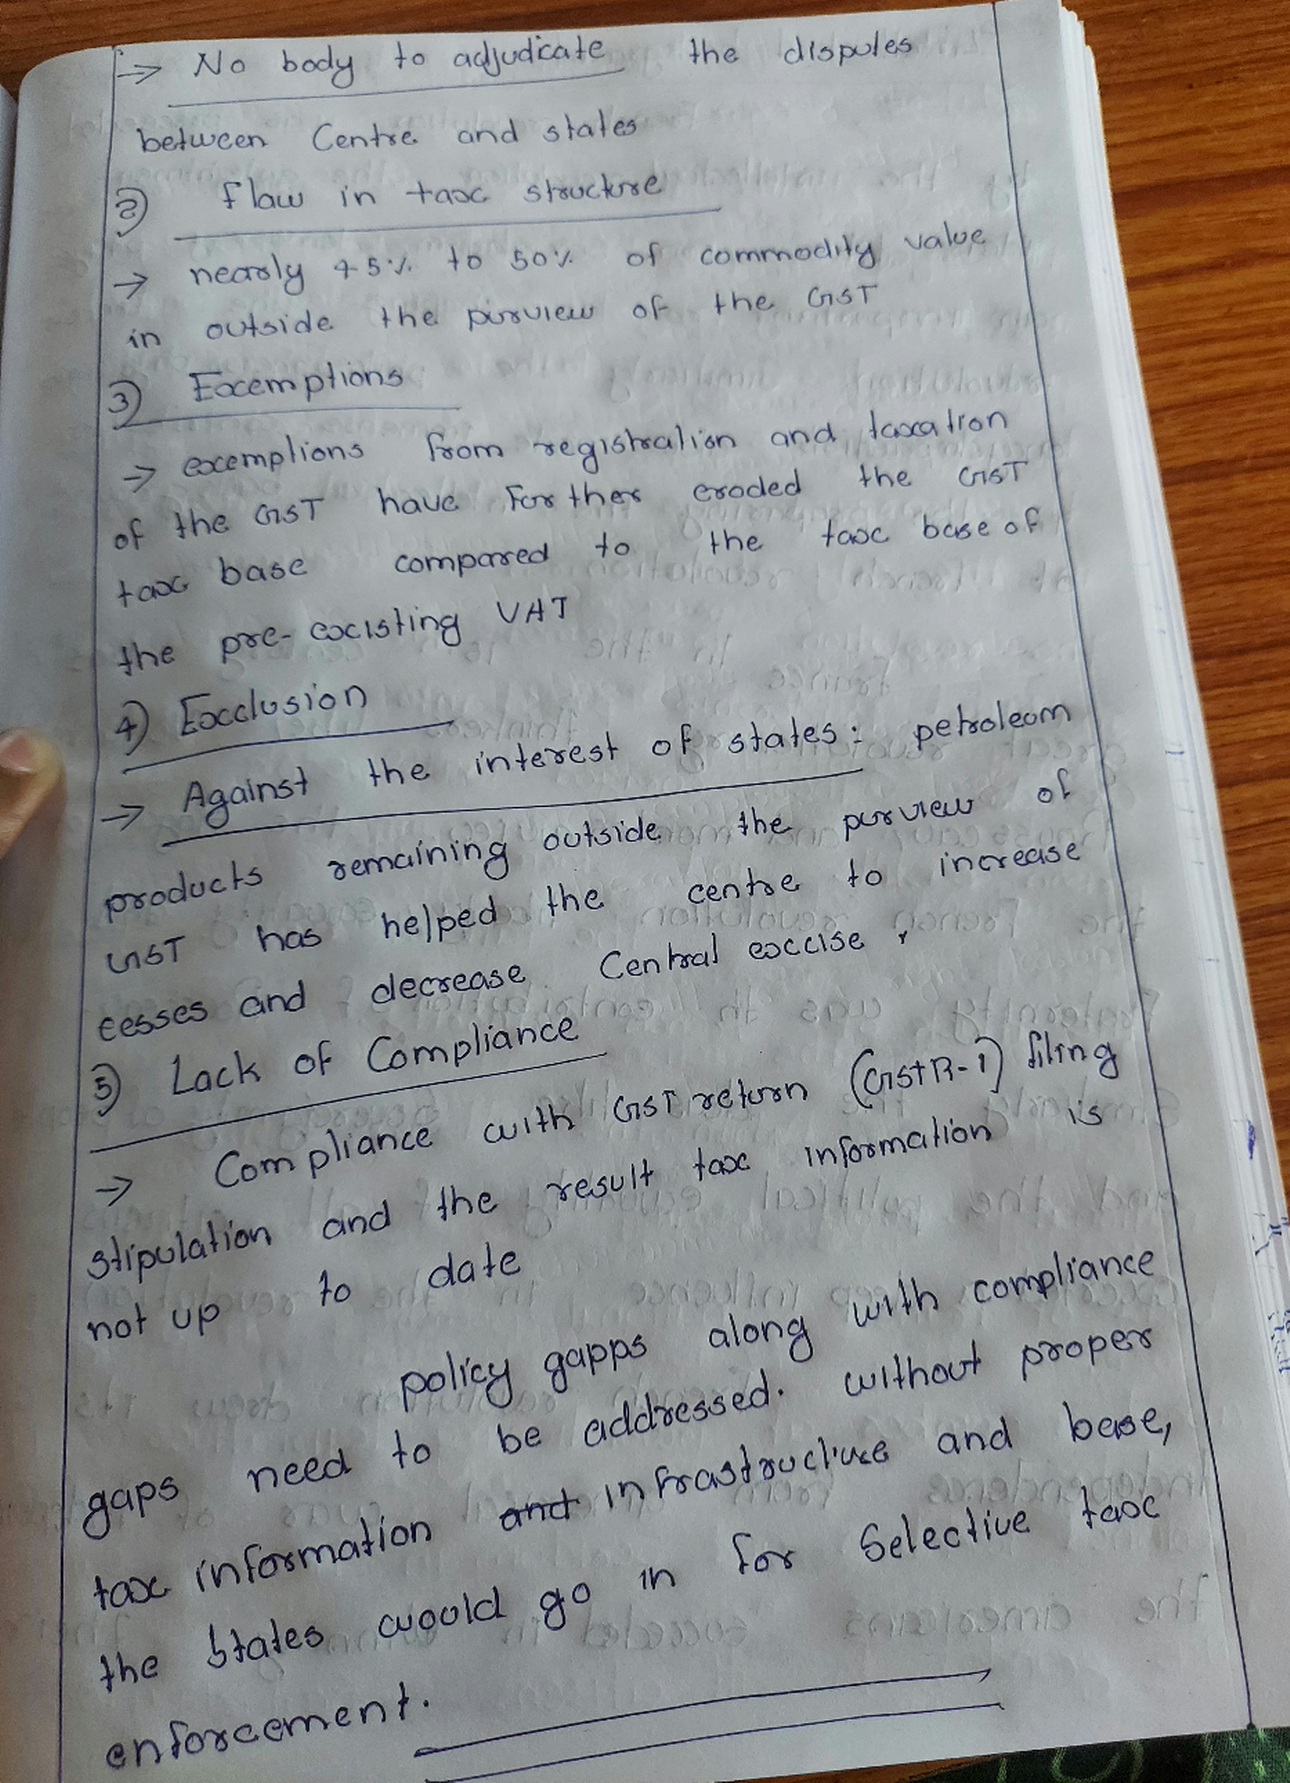 → No body to adjudicate the disputes
between Centre and states
2) flaw in tax structure
→ nearly 45% to 50% of commodity value
in outside the purview of the GST
3) Exemptions
→ exemptions from registration and taxation
of the GST have further eroded the GST
tax base compared to the tax base of
the pre-existing VAT
4) Exclusion
→ Against the interest of states: petroleum
products remaining outside the purview of
GST has helped the centre to increase
cesses and decrease Central excise.
5) Lack of Compliance
→ Compliance with GST return (GSTR-1) filing
stipulation and the result tax information is
not up to date
policy gapps along with compliance
gaps need to be addressed. without proper
tax information and infrastructure and base,
the States would go in for Selective tax
enforcement.